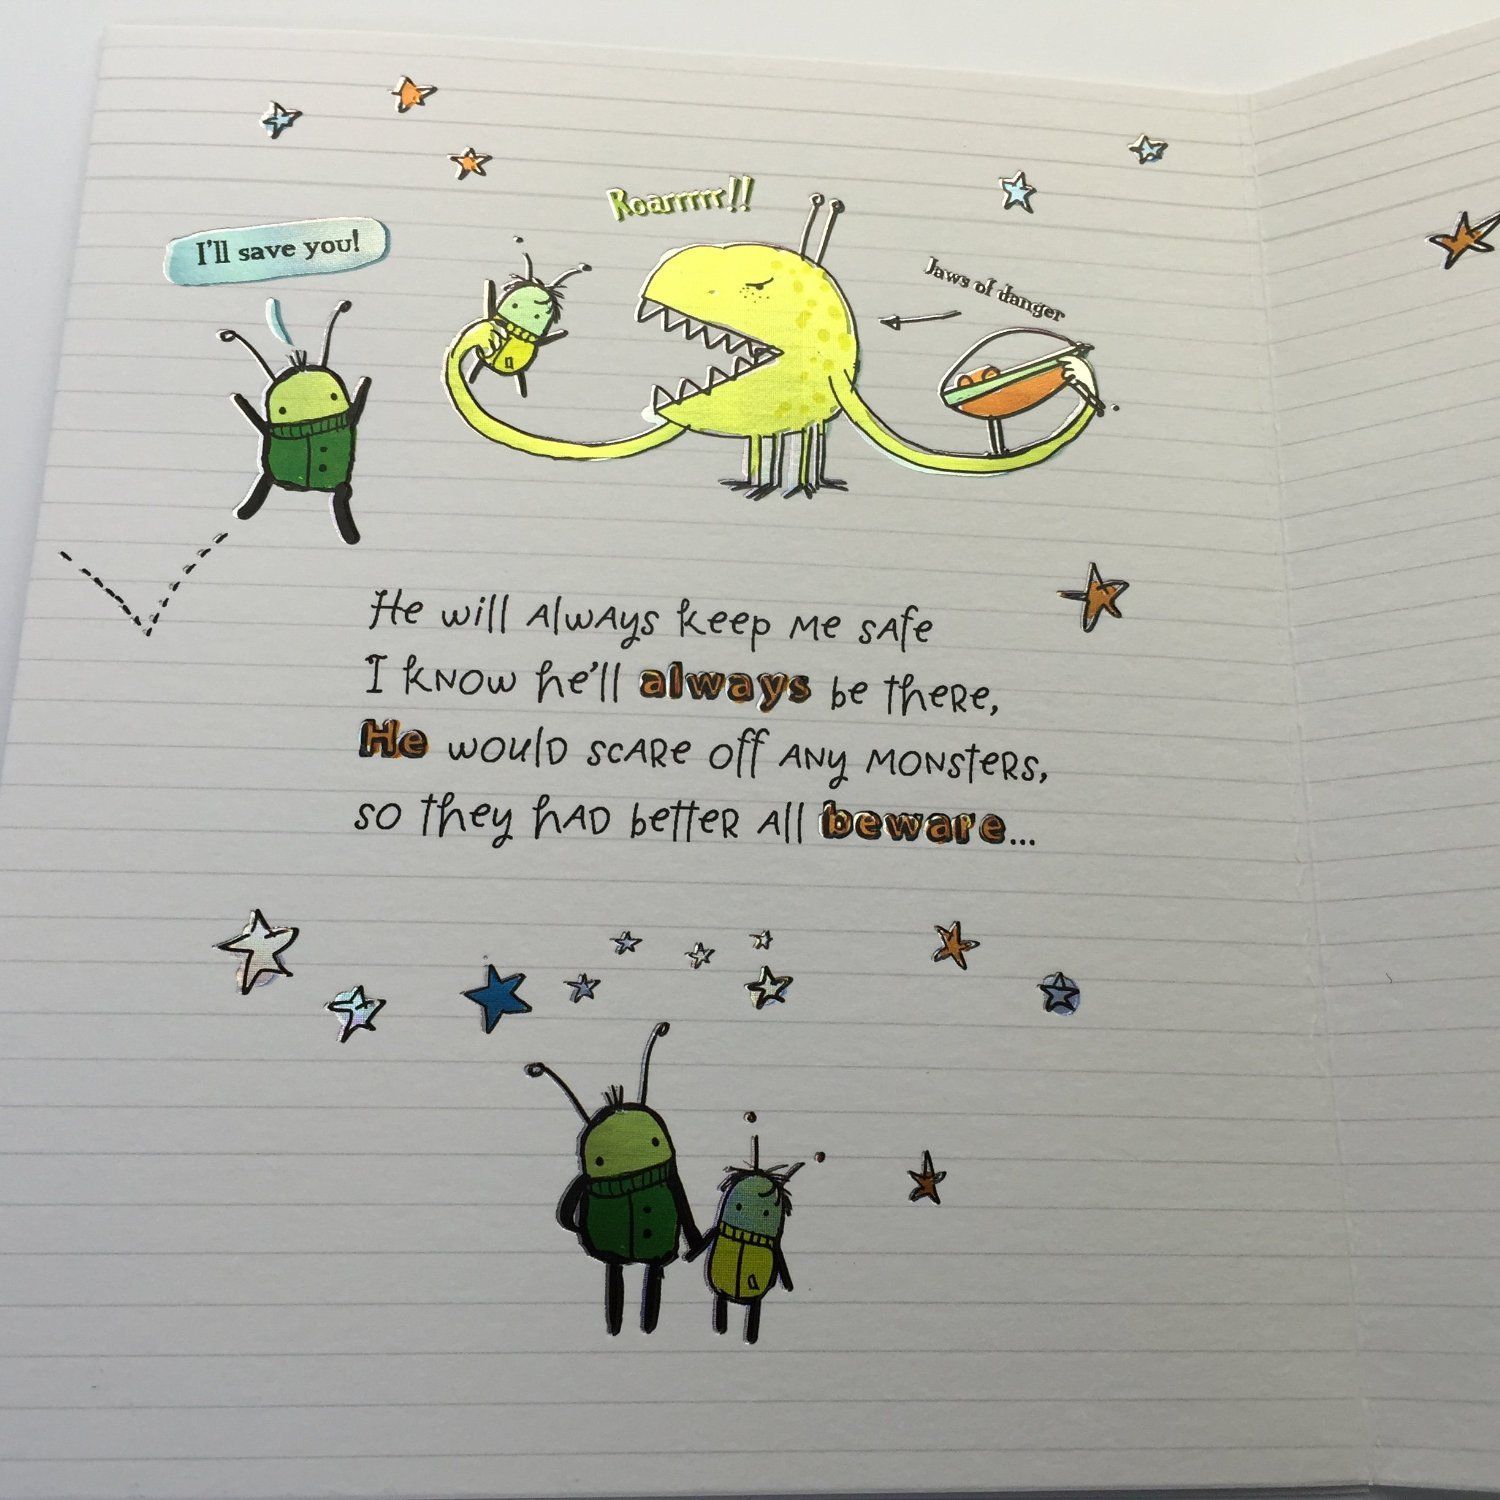 Roarrrrr!!
I'll save you!
Jaws of danger
He will always keep me safe
I know he'll always be there,
He would scare off any monsters,
so they had better all beware...